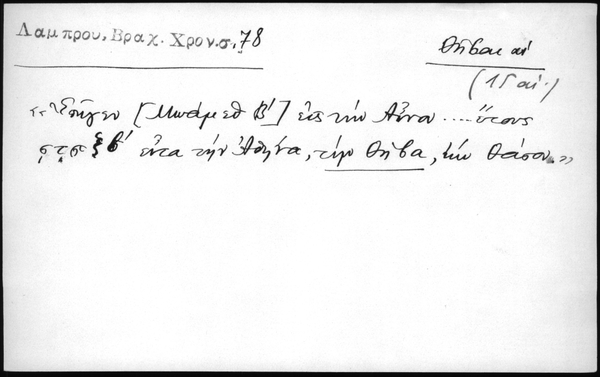 Λαμπρου, Βραχ. Χρον.σ. 78
Θῆβαι αἱ
(15 αἰ.)
«Ἐπῆγεν [Μωάμεθ Β'] εἰς τὴν Αἶνον .... ἔτους
ϛτσξβ' εἶτα τὴν Ἀθήνα, τὴν Θήβα, τὴν Θάσον.»